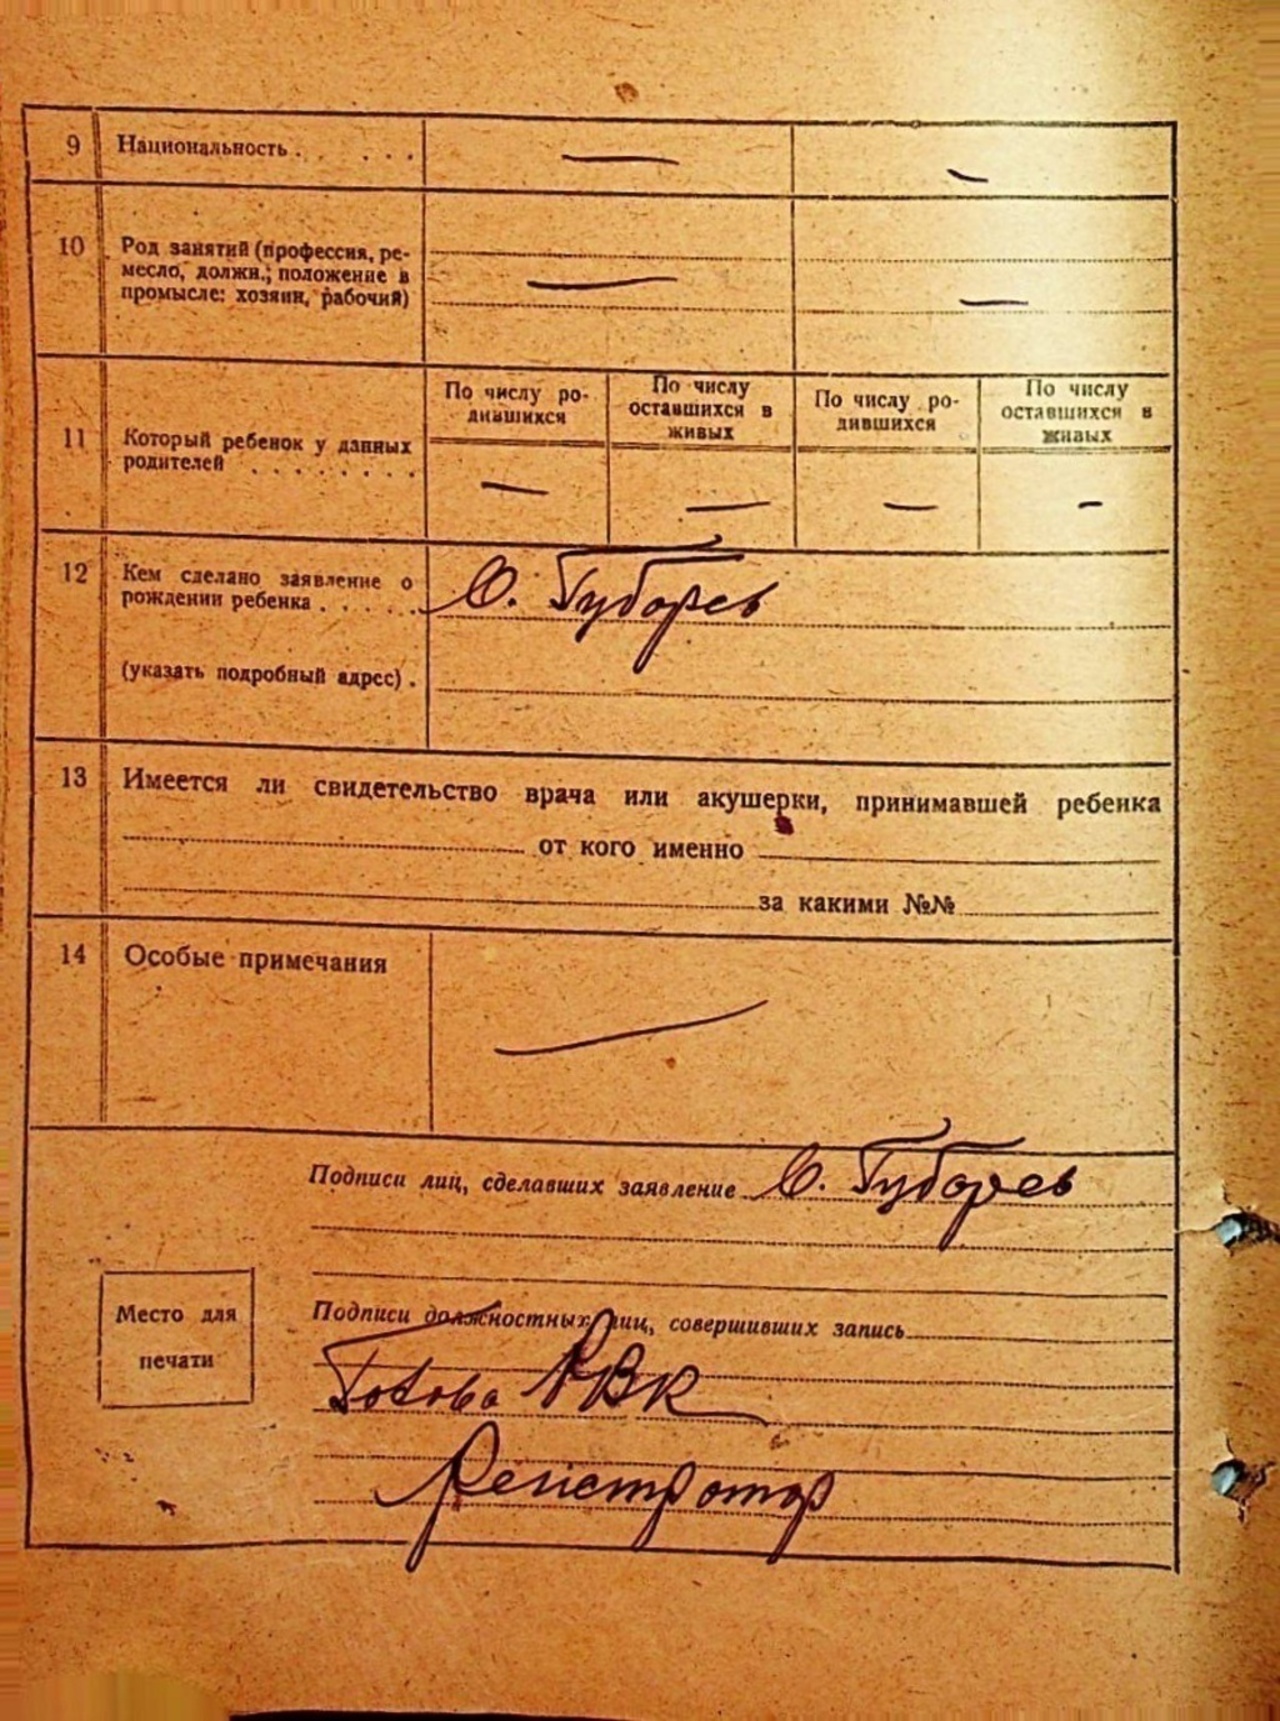 9 Национальность . . . . . — —
10 Род занятий (профессия, ре-
месло, должн.; положение в
промысле: хозяин, рабочий) — —
По числу ро-
дившихся
По числу
оставшихся в
живых
По числу ро-
дившихся
По числу
оставшихся в
живых
11 Который ребенок у данных
родителей . . . . . . . . — — — —
12 Кем сделано заявление о
рождении ребенка . . . . . . Губорев
(указать подробный адрес) .
13 Имеется ли свидетельство врача или акушерки, принимавшей ребенка
от кого именно
за какими №№
14 Особые примечания —
Подписи лиц, сделавших заявление Губорев
Место для
печати
Подписи должностных лиц, совершивших запись
РВК
Регистратор